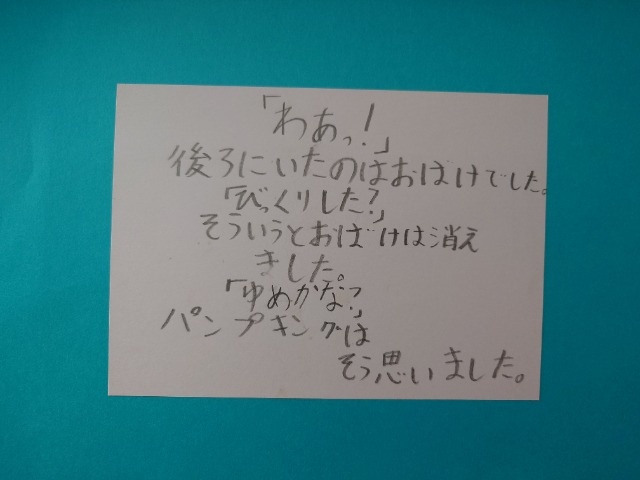 「わあっ!」
後ろにいたのはおばけでした。
「びっくりした?」
そういうとおばけは消え
ました。
「ゆめかな?」
パンプキングは
そう思いました。